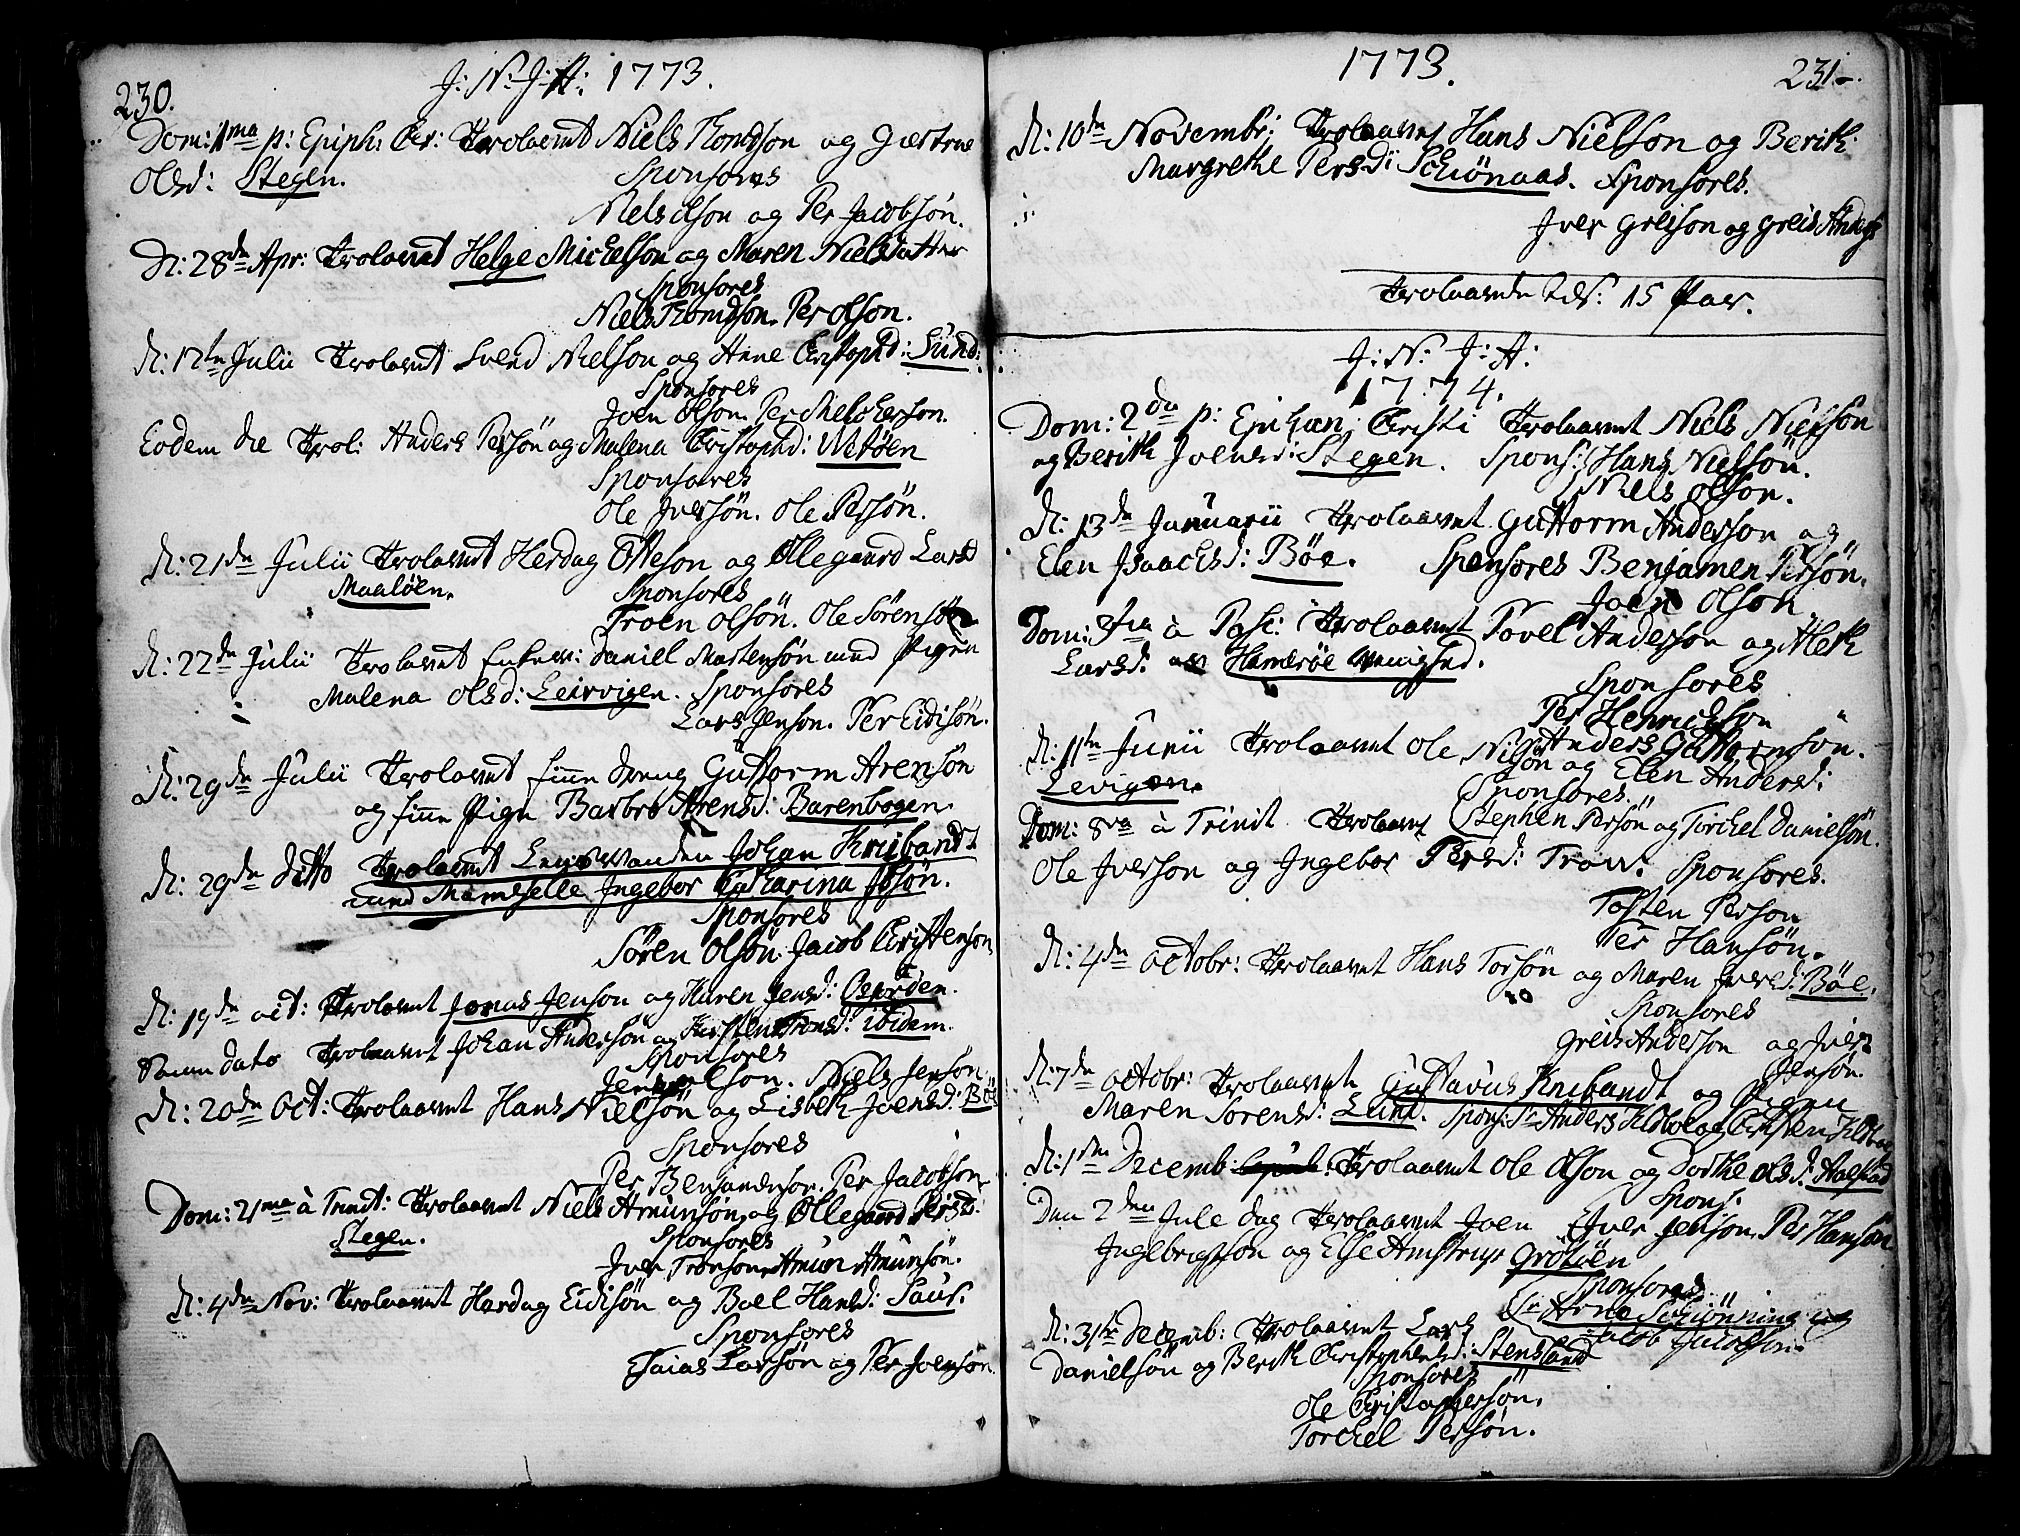 230.
J: N: J: A: 1773.
Dom: 1ma p: Epiph: Chr: Trolovet Niels Tromdson og Giertrue
Olsd: Stegen. Sponsores
Niels Olson og Per Jacobsön.
D: 28de Apr: Trolovet Helge Mickelson og Maren Nielsdatter
Sponsores
Niels Tromdson. Per Olson.
D: 12te Julii Trolovet Svend Nielson og Anne Christophd: Sund:
Sponsores
Joen Olson. Per Melcherson.
Eodem die Trol: Anders Persön og Malena Christophd: Wetöen
Sponsores
Ole Iversön. Ole Persön.
D: 21de Julii Trolovet Herdag Otteson og Ollegaard Larsd
Maalöen. Sponsores
Troen Olsön. Ole Sörensön
D: 22de Julii Trolovet Enkem: Daniel Mortensön med Pigen
Malena Olsd: Leirvigen. Sponsores
Lars Jenson. Per Eidisön.
D: 29de Julii Trolovet finne dreng Guttorm Arensön
og finne Pige Barbro Arensd: Barenbogen.
D: 29de ditto Trolovet Johan Knibandt
med Mamselle Ingebor Catharina Ibsön.
Sponsores
Sören Olsön. Jacob Christenson
D: 19de oct: Trolovet Jonas Jenson og Karen Jensd:
dato Trolovet Johan Anderson og Kirsten Tronsd: ibidem.
Sponsores
Jens Olson. Niels Jensön
D: 20de Oct: Trolovet Hans Nielsön og Lisbeth Joensd: Böe
Sponsores
Per Benjamenson. Per Jacobson
Dom: 21ma à Trinit: Trolovet Niels Amunsön og Ollegaard Persd:
Stegen. Sponsores
Iver Tronson. Amun Amunsön.
D: 4de Nov: Trolovet Hardag Eidisön og Boel Hansd: Saur.
Sponsores
Esaias Larsön og Per Joenson
1773. 231
D: 10de Novembr: Trolovet Hans Nielson og Berith
Margrethe Persd: Schiönaas. Sponsores.
Iver Greison og Greis Anders
Trolovede 15 Par.
J: N: J: A:
1774.
Dom: 2da p: Epihan: Christi Trolovet Niels Nielson
og Berith Joensd: Stegen. Spons: Hans Nielsön.
Niels Olson.
D: 13de Januarii Trolovet Guttorm Anderson og
Elen Isaachsd: Böe. Sponsores Benjamen Persön.
Joen Olson.
Dom: à Pasc: Trolovet Povel Anderson og Aleth
Larsd: Hameröe
Sponsores
Per Henrichson
Anders Guttormsön.
D: 11te Junii Trolovet Ole Nilsön og Elen Andersd:
Levigen. Sponsores.
Stephen Persön og Torchel Danielsön.
Dom: 8va à Trinit Trolovet
Ole Iverson og Ingebor Persd: Sponsores.
Tosten Person
Per Hansön.
D: 4de octobr: Trolovet Hans Torsön og Maren Iversd: Böe.
Sponsores
Greis Anderson og Iver
Jensön.
D: 7de octobr: Trolovet Gustavus Knibandt og Pigen
Maren Sorensd: Lund. Spons: Sr Anders Kildal og Christen Kildal
D: 1ste Decemb: Trolovet Ole Olson og Dorthe Olsd: Aalstad
Spons.
Den 2den Jule dag Trolovet Joen Iver Jenson. Per Hanson
Ingebrigtson og Else Amstrup Grötöen
Sponsores
Sr Arne Schiönning og
Jacob Jacobson.
D: 31te Decemb: Trolovet Lars
Danielsön og Berith Christophersd: Stensland
Sponsores
Ole Christophersön.
Torchel Persön.